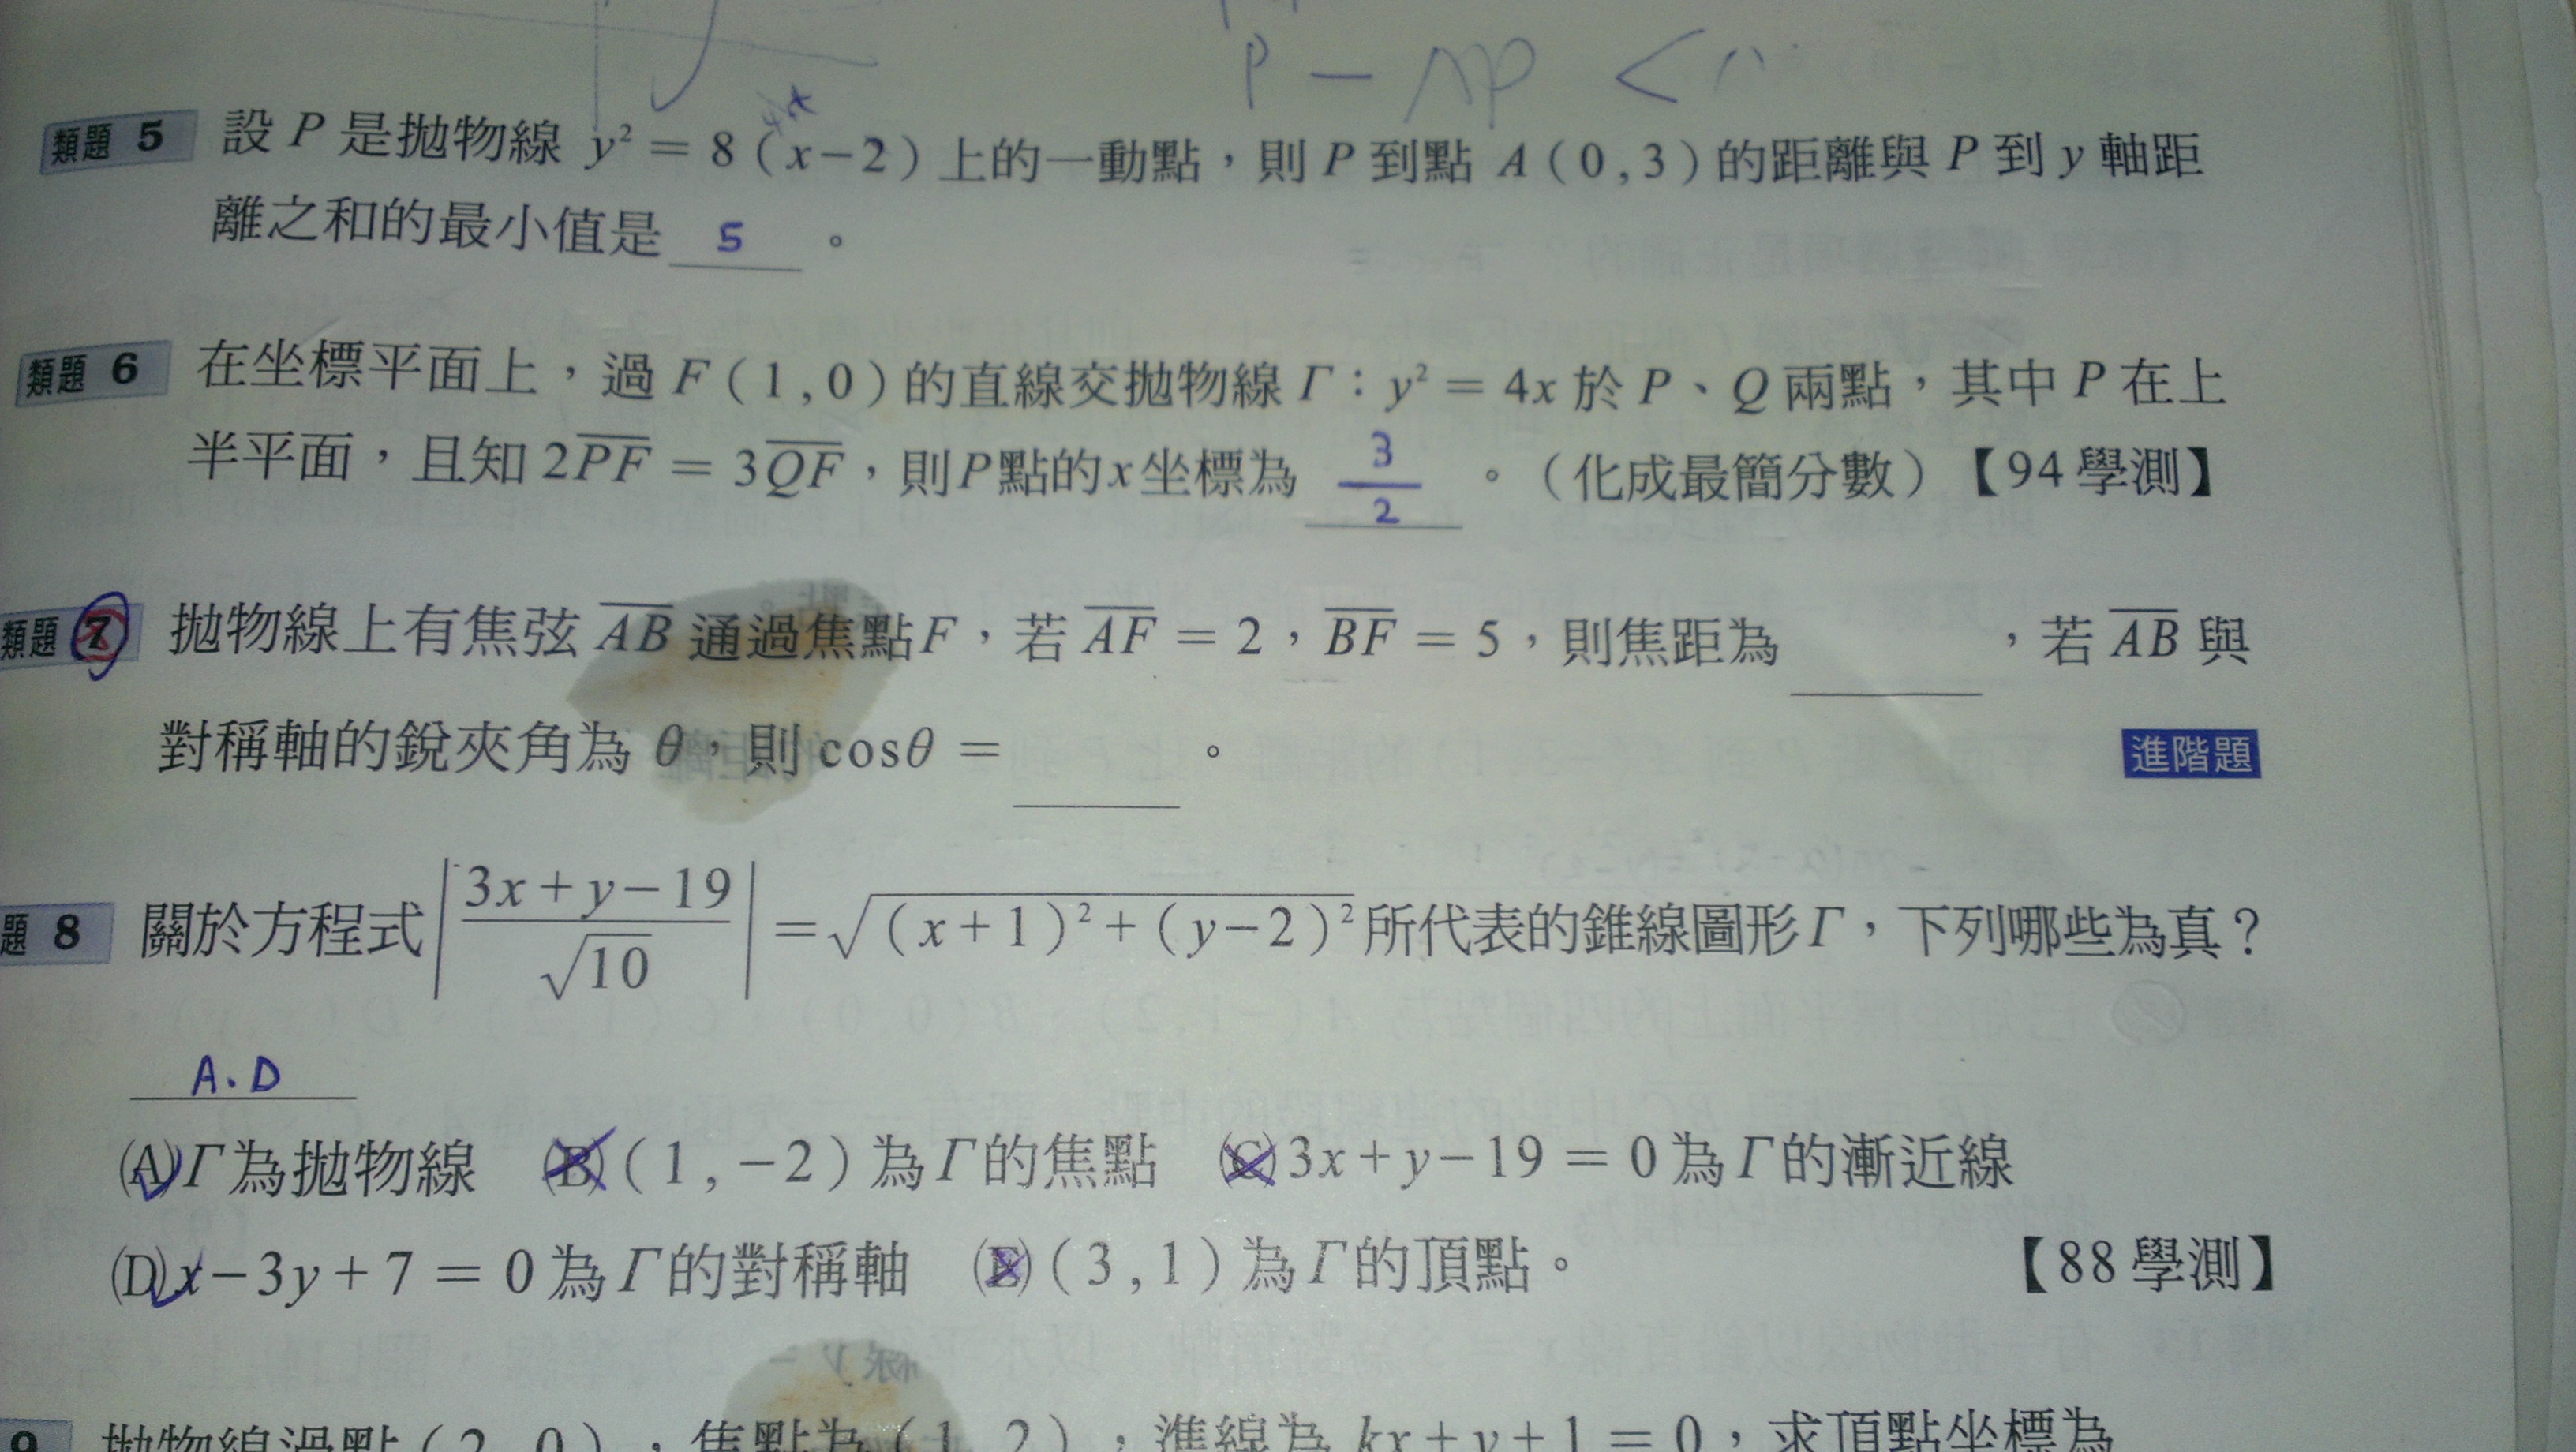 P - AP <
4x
類題 5 設 P 是拋物線 y² = 8 ( x − 2 ) 上的一動點，則 P 到點 A ( 0 , 3 ) 的距離與 P 到 y 軸距
離之和的最小值是 5 。
類題 6 在坐標平面上，過 F ( 1 , 0 ) 的直線交拋物線 Γ：y² = 4x 於 P、Q 兩點，其中 P 在上
半平面，且知 2\overline{PF} = 3\overline{QF}，則P點的x坐標為 3/2 。（化成最簡分數）【94 學測】
類題 7 拋物線上有焦弦 \overline{AB} 通過焦點F，若 \overline{AF} = 2，\overline{BF} = 5，則焦距為 ＿＿＿，若 \overline{AB} 與
對稱軸的銳夾角為 θ，則 cosθ = ＿＿＿。 進階題
題 8 關於方程式 |(3x + y − 19)/√10| = √((x + 1)² + (y − 2)²) 所代表的錐線圖形Γ，下列哪些為真？
A.D
(A) Γ為拋物線 (B) ( 1 , −2 ) 為Γ的焦點 (C) 3x + y − 19 = 0 為Γ的漸近線
(D) x − 3y + 7 = 0 為Γ的對稱軸 (E) ( 3 , 1 ) 為Γ的頂點。 【88 學測】
9 拋物線過點 ( 2 , 0 )，焦點為 ( 1 , 2 )，準線為 kx + y + 1 = 0，求頂點坐標為